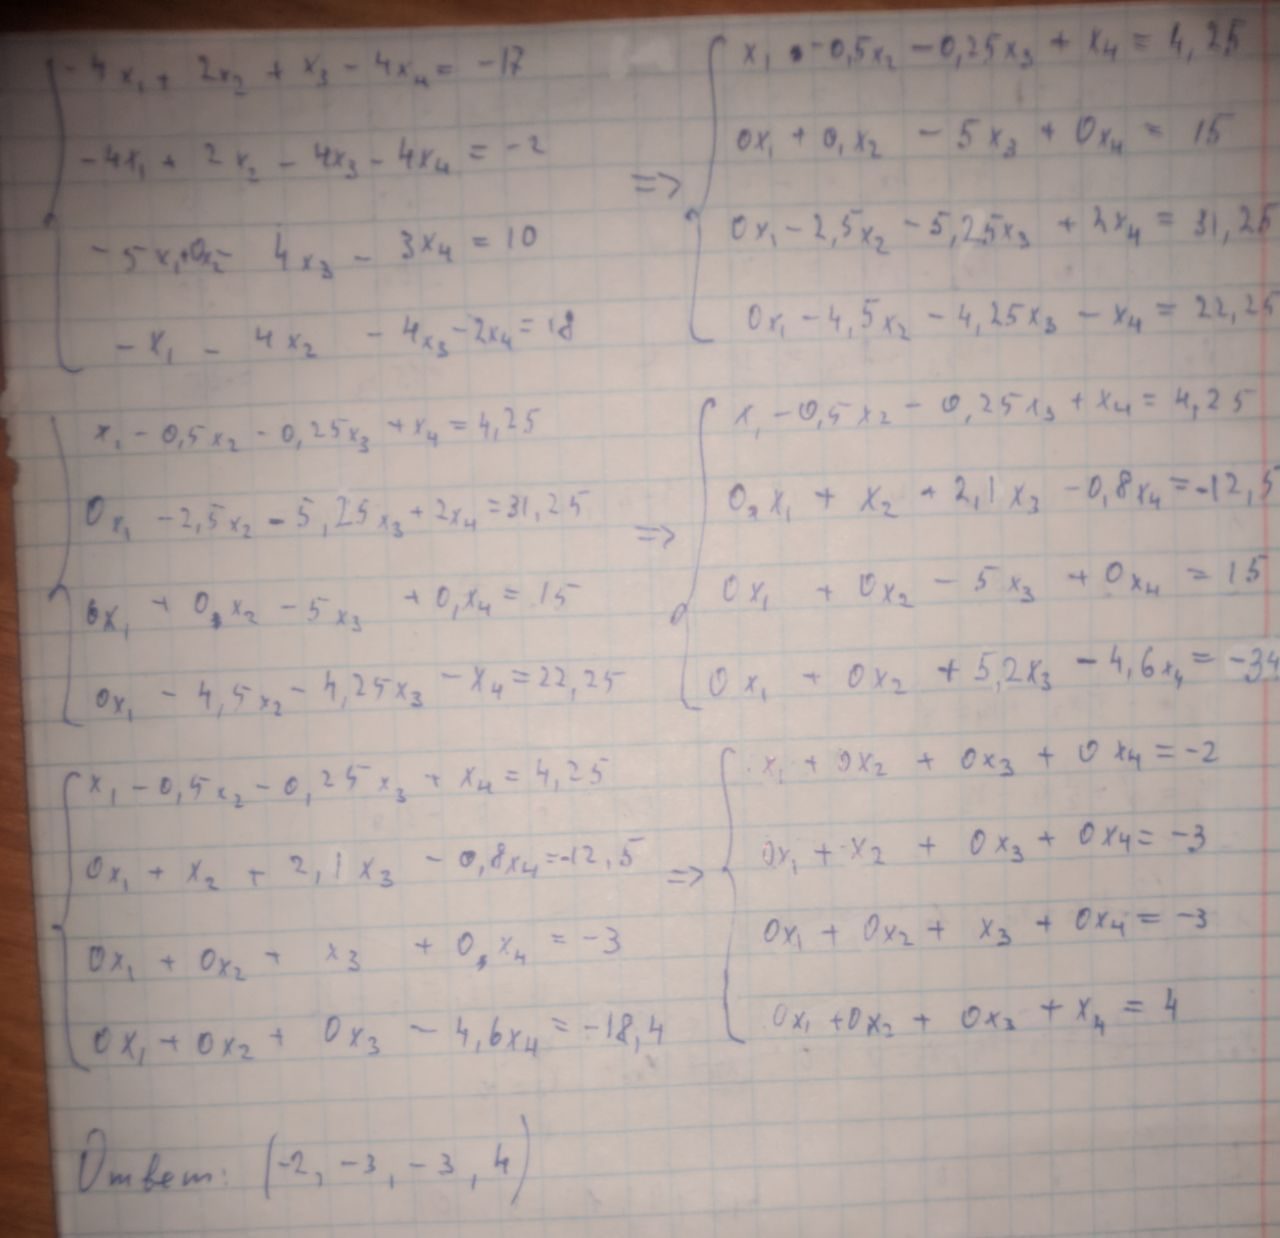 -4x₁ + 2x₂ + x₃ - 4x₄ = -17
-4x₁ + 2x₂ - 4x₃ - 4x₄ = -2
-5x₁ + 0x₂ - 4x₃ - 3x₄ = 10
-x₁ - 4x₂ - 4x₃ - 2x₄ = 18
=>
x₁ - 0,5x₂ - 0,25x₃ + x₄ = 4,25
0x₁ + 0,x₂ - 5x₃ + 0x₄ = 15
0x₁ - 2,5x₂ - 5,25x₃ + 2x₄ = 31,25
0x₁ - 4,5x₂ - 4,25x₃ - x₄ = 22,25
x₁ - 0,5x₂ - 0,25x₃ + x₄ = 4,25
0x₁ - 2,5x₂ - 5,25x₃ + 2x₄ = 31,25
0x₁ + 0,x₂ - 5x₃ + 0,x₄ = 15
0x₁ - 4,5x₂ - 4,25x₃ - x₄ = 22,25
=>
x₁ - 0,5x₂ - 0,25x₃ + x₄ = 4,25
0,x₁ + x₂ + 2,1x₃ - 0,8x₄ = -12,5
0x₁ + 0x₂ - 5x₃ + 0x₄ = 15
0x₁ + 0x₂ + 5,2x₃ - 4,6x₄ = -34
x₁ - 0,5x₂ - 0,25x₃ + x₄ = 4,25
0x₁ + x₂ + 2,1x₃ - 0,8x₄ = -12,5
0x₁ + 0x₂ + x₃ + 0,x₄ = -3
0x₁ + 0x₂ + 0x₃ - 4,6x₄ = -18,4
=>
x₁ + 0x₂ + 0x₃ + 0x₄ = -2
0x₁ + x₂ + 0x₃ + 0x₄ = -3
0x₁ + 0x₂ + x₃ + 0x₄ = -3
0x₁ + 0x₂ + 0x₃ + x₄ = 4
Ответ: (-2, -3, -3, 4)